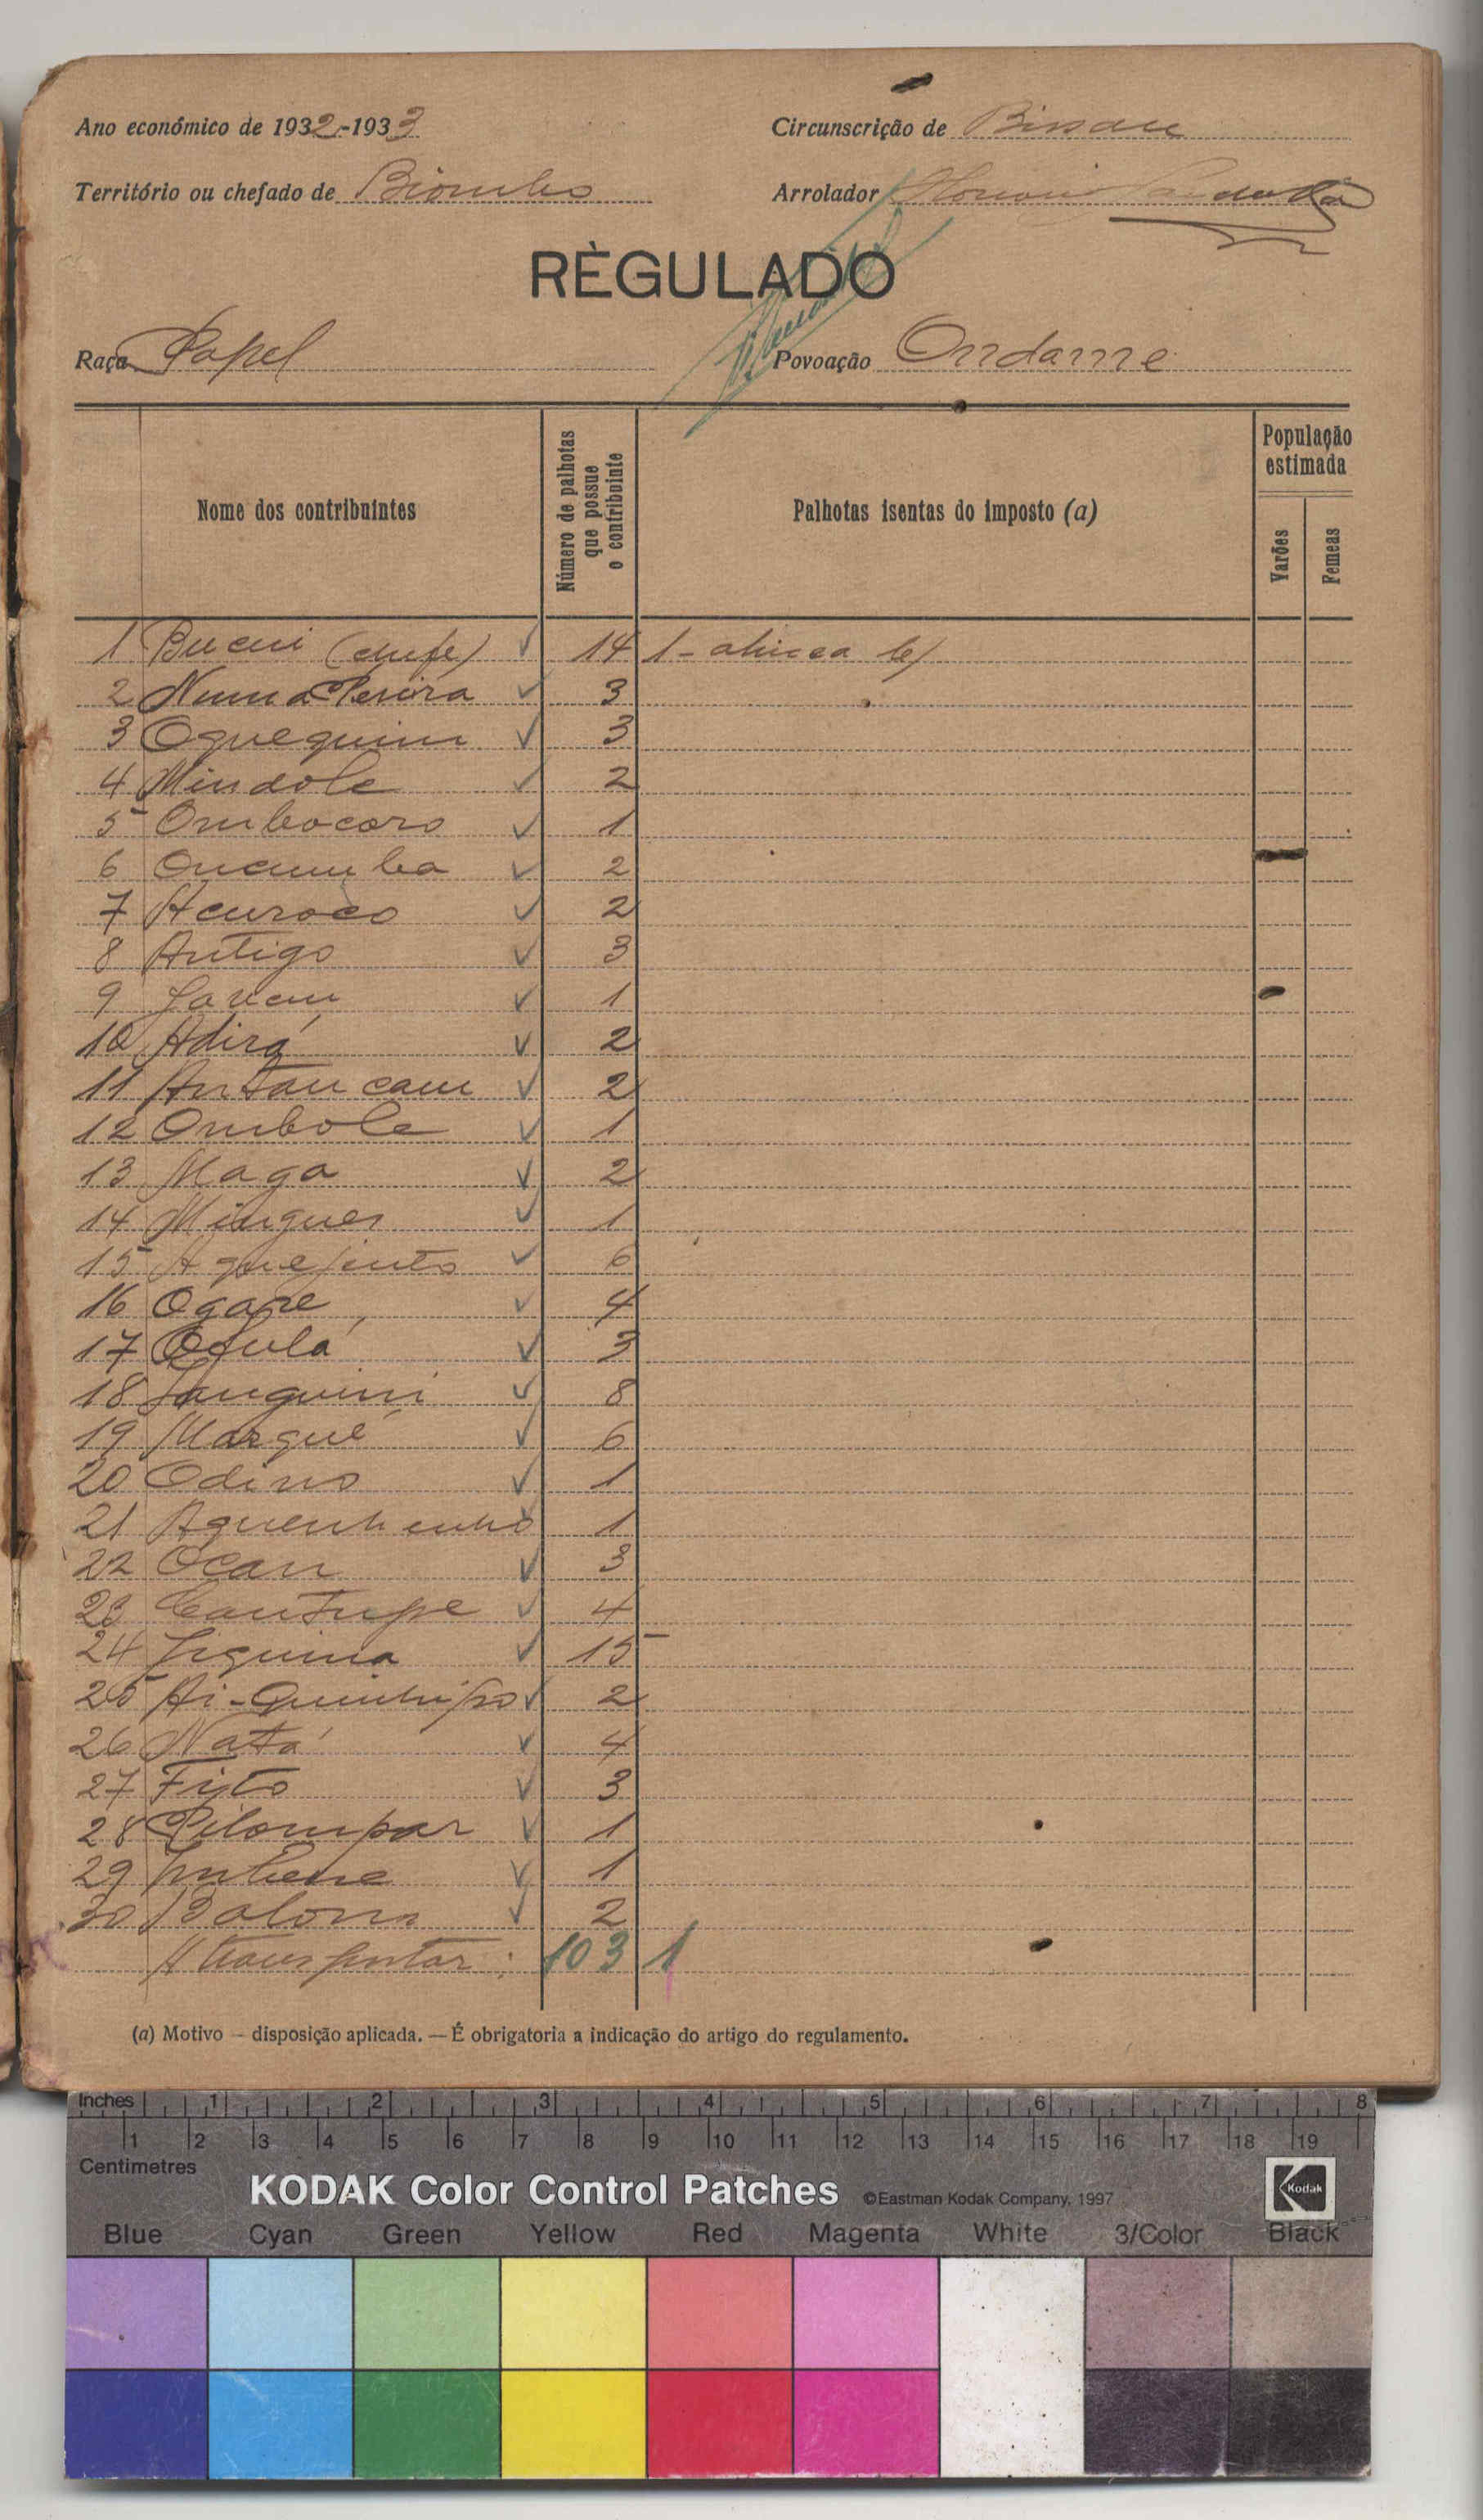 Ano económico de 1932-1933
Circunscrição de Bissau
Território ou chefado de Biombo
Arrolador
RÈGULADO
Raça Papel
Povoação Ondame
Nome dos contribuintes
Número de palhotas que possue o contribuinte
Palhotas isentas do imposto (a)
População estimada
Varões
Femeas
1 Bucui (chefe) 14 1- alinea b)
2 Numa Pereira 3
3 Oquequim 3
4 Mindole 2
5 Ombocoro 1
6 2
7 2
8 Antigo 3
9 Jovem 1
10 Adirá 2
11 Antan cam 2
12 Ombole 1
13 Maga 2
14 Mingues 1
15 6
16 Ogape 4
17 3
18 8
19 Marqué 6
20 Odino 1
21 1
22 Ocan 3
23 Cantupe 4
24 15
25 2
26 Natá 4
27 3
28 Pilompar 1
29 1
30 2
A transportar: 103 1
(a) Motivo — disposição aplicada. — É obrigatoria a indicação do artigo do regulamento.
Inches 1 2 3 4 5 6 7 8
1 2 3 4 5 6 7 8 9 10 11 12 13 14 15 16 17 18 19
Centimetres
KODAK Color Control Patches ©Eastman Kodak Company, 1997 Kodak
Blue Cyan Green Yellow Red Magenta White 3/Color Black